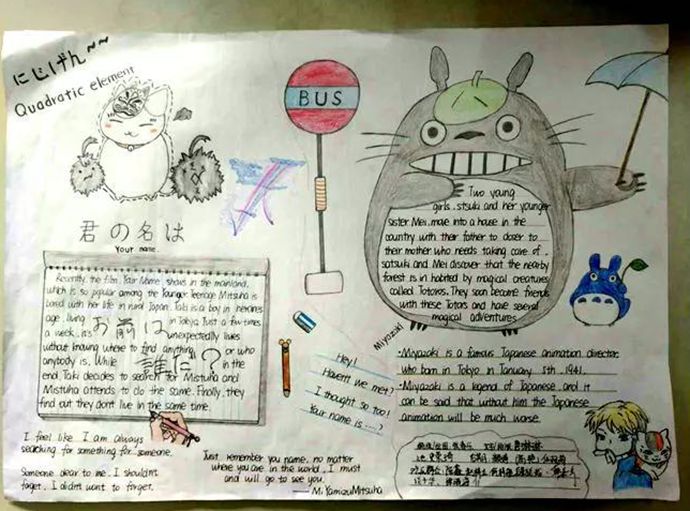 にじげん~~
Quadratic element
君の名は
Your name.
Recently, the film Your Name shows in the mainland,
which is so popular among the Younger Teenage Mitsuha is
bored with her life in rural Japan. Taki is a boy in heroines
age, living in Tokyo. Just a few times
a week, it's unexpectedly lives
without knowing where to find anything or who
anybody is. While in the
end, Taki decides to search for Mistuha and
Mistuha attends to do the same. Finally, they
find out they don't live in the same time.
お前は
誰だ?
I feel like I am always
searching for something for someone.
Someone dear to me. I shouldn't
foget. I didn't want to forget.
BUS
Two young
girls, stsuki and her younger
sister Mei, move into a house in the
country with their father to closer to
their mother who needs taking care of.
satsuki and Mei discover that the nearby
forest is in habited by magical creatures
called Totoros. They soon become friends
with these Totors and have several
magical adventures
Miyazaki
·Miyazaki is a famous Japanese animation director,
who born in Tokyo in January 5th, 1941.
·Miyazaki is a legend of Japanese, and it
can be said that without him the Japanese
animation will be much worse
Hey!
Haven't we met?
I thought so too!
Your name is ....?
Just remember you name, no matter
where you are in the world, I must
and will go to see you.
——MiYamizuMitsuha